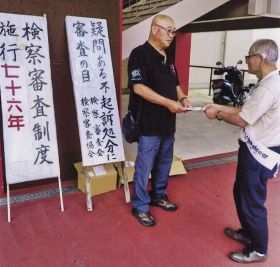 疑問ある不起訴処分に
審査の目
検察審査会
検察審査協会
検察審査制度
施行七十六年